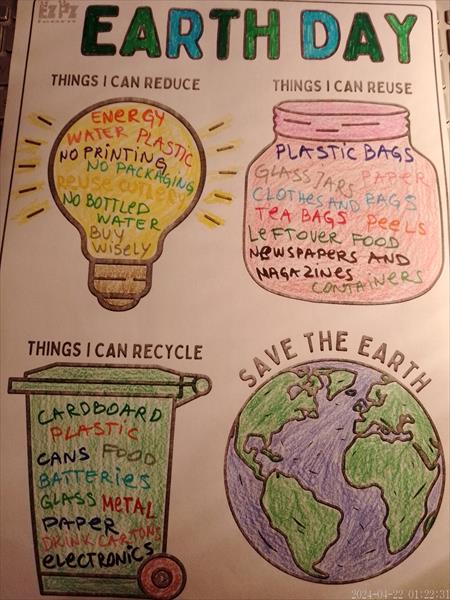 EZPZ
EARTH DAY
THINGS I CAN REDUCE
ENERGY
WATER PLASTIC
NO PRINTING
NO PACKAGING
REUSE CUTLERY
NO BOTTLED
WATER
BUY
WISELY
THINGS I CAN REUSE
PLASTIC BAGS
GLASS JARS PAPER
CLOTHES AND BAGS
TEA BAGS PEELS
LEFTOVER FOOD
NEWSPAPERS AND
MAGAZINES
CONTAINERS
THINGS I CAN RECYCLE
CARDBOARD
PLASTIC
CANS FOOD
BATTERIES
GLASS METAL
PAPER
DRINK CARTONS
ELECTRONICS
SAVE THE EARTH
2024-04-22 01:22:31